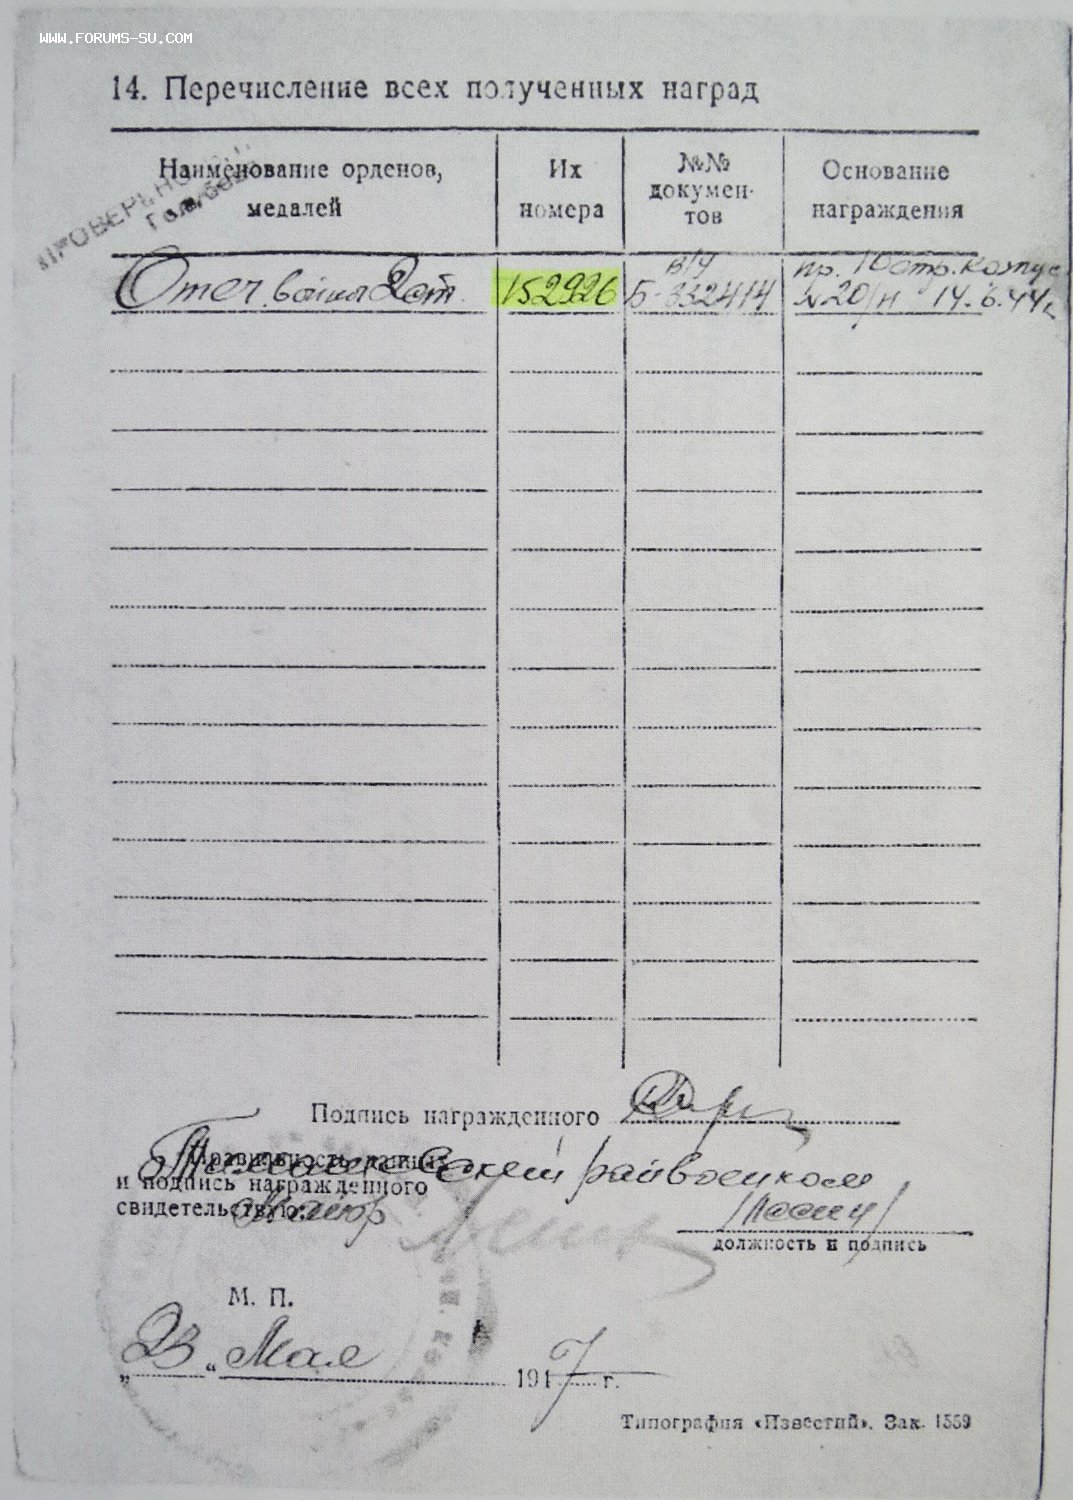 WWW.FORUMS-SU.COM
14. Перечисление всех полученных наград
Наименование орденов, медалей
Их номера
№№ докумен-тов
Основание награждения
Отеч. войны 2 ст.
152926
в/у Б-332414
пр. 10 стр. корпуса
№ 20/н 14.6.44г.
Подпись награжденного
Правильность данных
и подпись награжденного
свидетельствую:
райвоенком
Майор
должность и подпись
М. П.
„23“ Мая 1917 г.
Типография «Известий». Зак. 1559